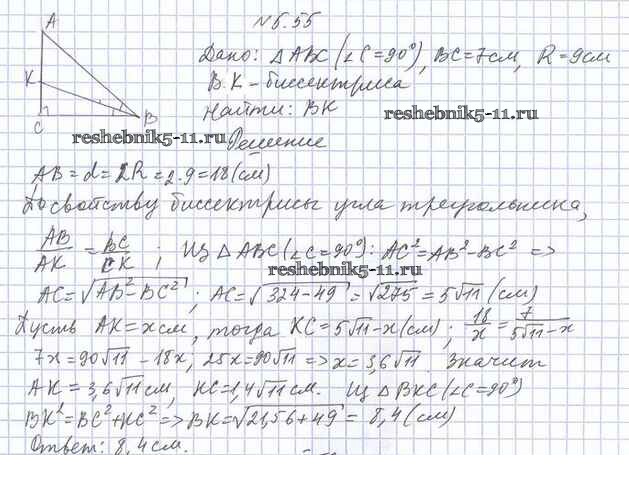 №5.55
A
K
C
B
Дано: △ABC (∠C=90°), BC=7см, R=9см
BK - биссектриса
Найти: BK
reshebnik5-11.ru
reshebnik5-11.ru
Решение
AB=d=2R=2·9=18(см)
По свойству биссектрисы угла треугольника,
AB/AK = BC/CK; Из △ABC(∠C=90°): AC²=AB²-BC² =>
reshebnik5-11.ru
AC=√(AB²-BC²); AC=√(324-49)=√275=5√11 (см)
Пусть AK=x см, тогда KC=5√11-x(см); 18/x=7/(5√11-x)
7x=90√11-18x, 25x=90√11=>x=3,6√11. Значит
AK=3,6√11см, KC=1,4√11см. Из △BKC(∠C=90°)
BK²=BC²+KC²=>BK=√(21,56+49)=8,4(см)
Ответ: 8,4см.